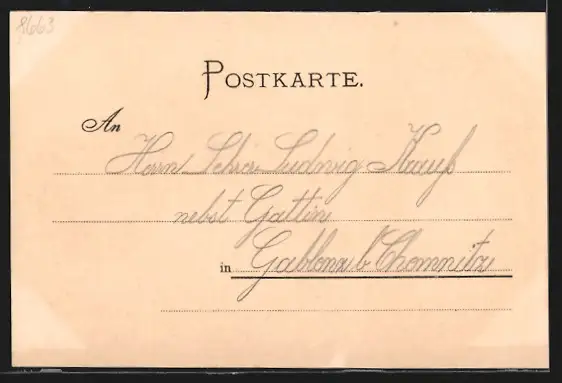 8663
POSTKARTE.
An
Herrn Ludwig Krauß
nebst Gattin
in Gablenz b Chemnitz